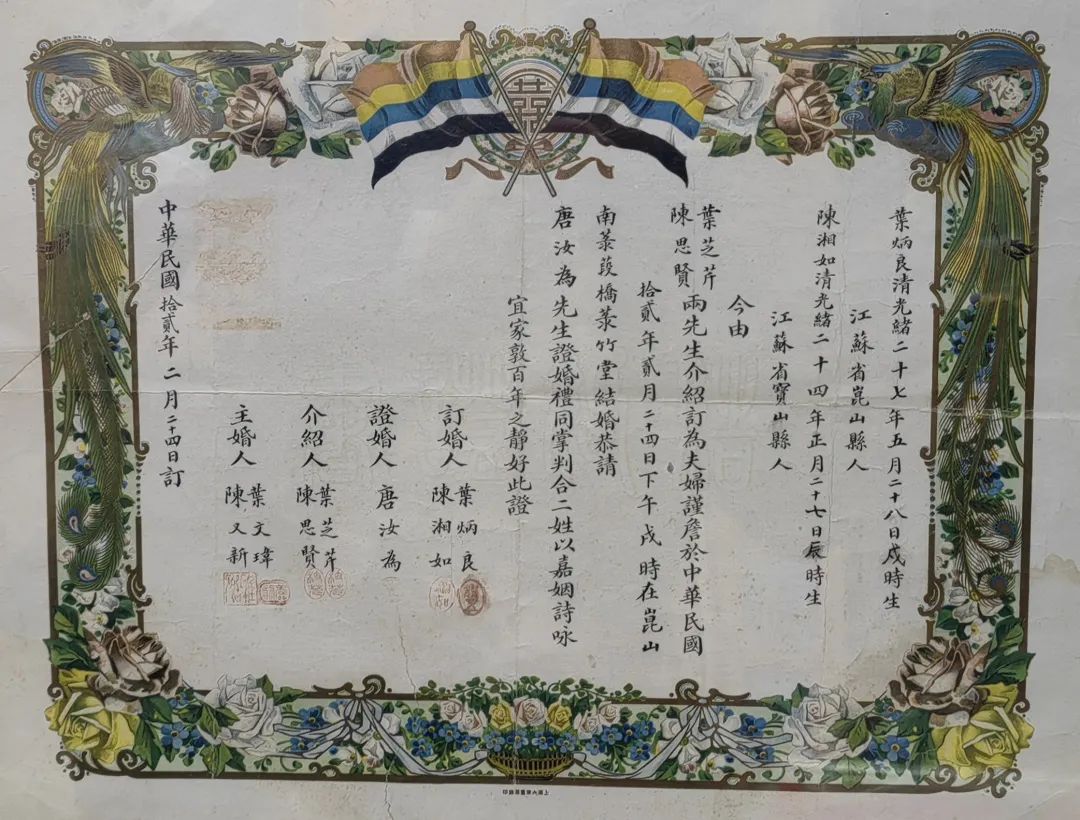 囍
葉炳良清光緒二十七年五月二十八日戌時生
江蘇省崑山縣人
陳湘如清光緒二十四年正月二十七日辰時生
江蘇省寶山縣人
今由
葉芝芹
陳思賢兩先生介紹訂為夫婦謹詹於中華民國
拾貳年貳月二十四日下午戌時在崑山
南菉葭橋菉竹堂結婚恭請
唐汝為先生證婚禮同掌判合二姓以嘉姻詩咏
宜家敦百年之靜好此證
訂婚人 葉炳良
陳湘如
證婚人 唐汝為
介紹人 葉芝芹
陳思賢
主婚人 葉文瑋
陳又新
中華民國拾貳年二月二十四日訂